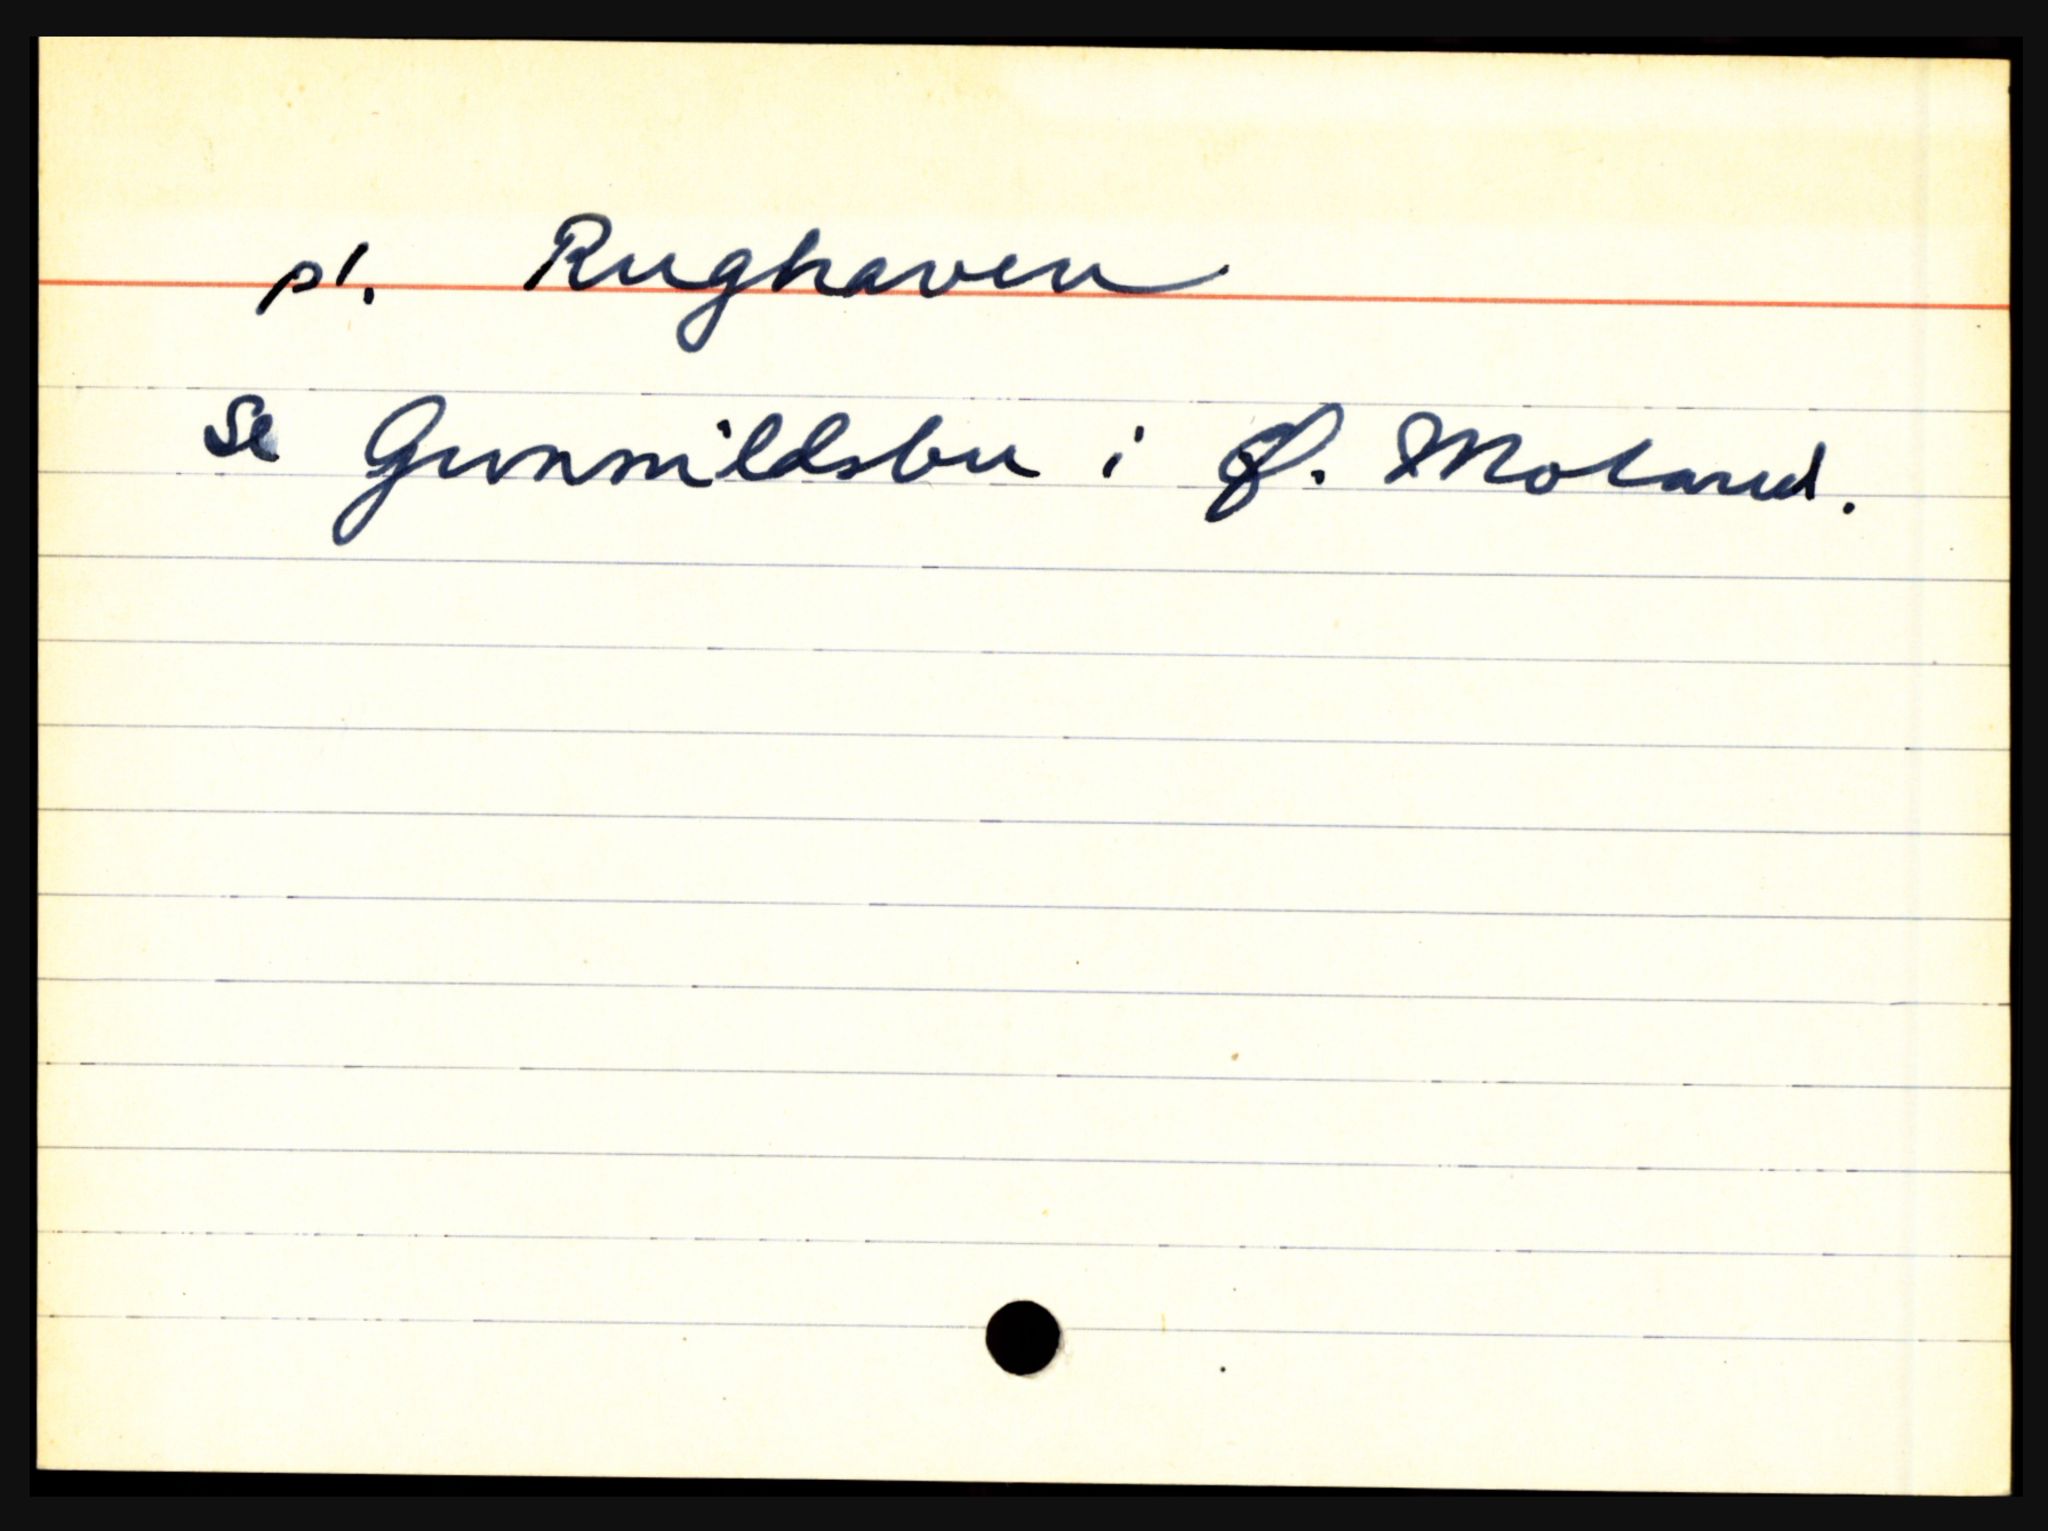 pl. Rughaven
se Gunnildsbu i Ø. Moland.